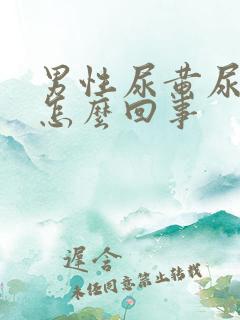 男性尿黃尿
怎麼回事
遲舍
未经同意禁止转载